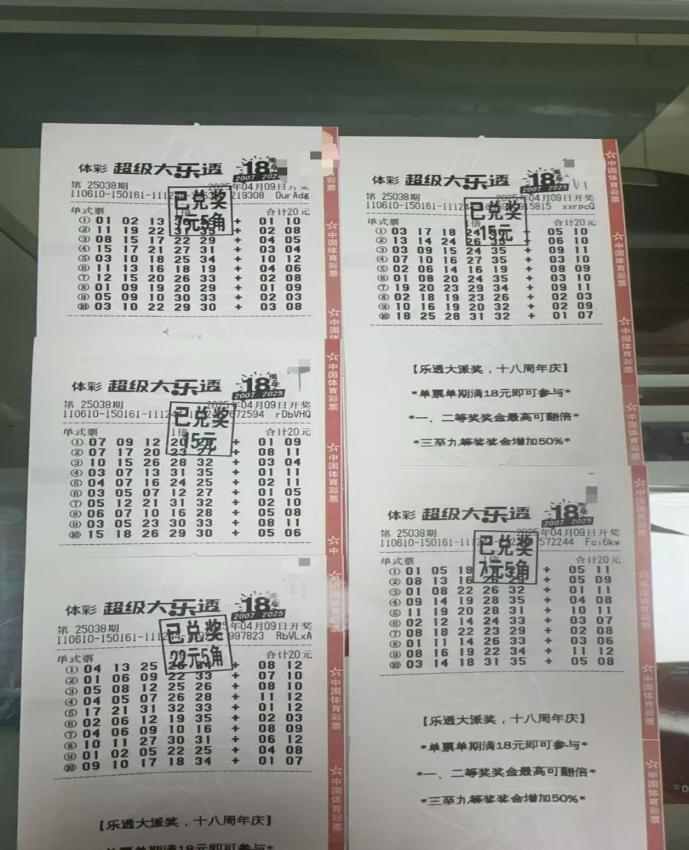 体彩 超级大乐透 18周年
2007 2025
第 25038期 2025年04月09日开奖
110610-150161-111 219308 DurAdg
单式票 1倍 合计20元
已兑奖
5角
① 01 02 13 + 01 10
② 11 19 22 + 02 08
③ 08 15 17 22 29 + 04 05
④ 15 17 21 27 31 + 03 04
⑤ 03 10 18 25 34 + 10 12
⑥ 11 13 16 18 19 + 04 06
⑦ 12 15 20 26 33 + 02 08
⑧ 01 09 19 20 29 + 01 09
⑨ 05 09 10 30 33 + 02 03
⑩ 03 10 22 29 30 + 03 08
中国体育彩票
体彩 超级大乐透 18周年
2007 2025
第 25038期 2025年04月09日开奖
110610-150161-11 15815 xxrpcQ
单式票 1倍 合计20元
已兑奖
15元
① 03 17 18 + 05 10
② 13 14 24 26 + 05 10
③ 03 09 15 24 35 + 09 11
④ 07 10 16 27 35 + 03 10
⑤ 02 06 14 16 19 + 08 09
⑥ 01 08 20 24 35 + 03 10
⑦ 19 20 23 29 34 + 09 11
⑧ 02 18 19 23 26 + 02 03
⑨ 10 16 19 20 32 + 02 09
⑩ 18 25 28 31 32 + 01 07
【乐透大派奖，十八周年庆】
*单票单期满18元即可参与*
*一、二等奖奖金最高可翻倍*
*三至九等奖奖金增加50%*
中国体育彩票
体彩 超级大乐透 18周年
2007 2025
第 25038期 2025年04月09日开奖
110610-150161-111 672594 rDbVHQ
单式票 1倍 合计20元
已兑奖
15元
① 07 09 12 + 01 09
② 07 17 20 + 08 11
③ 10 15 26 28 32 + 03 04
④ 03 07 13 31 35 + 01 11
⑤ 04 07 16 24 25 + 02 11
⑥ 03 05 07 12 27 + 01 05
⑦ 05 12 21 31 32 + 02 10
⑧ 06 07 10 16 28 + 05 08
⑨ 03 05 23 30 33 + 08 11
⑩ 15 18 26 29 30 + 05 06
中国体育彩票
体彩 超级大乐透 18周年
2007 2025
第 25038期 2025年04月09日开奖
110610-150161-111 572244 Fci6kw
单式票 合计20元
已兑奖
7元5角
① 01 05 18 + 05 11
② 08 13 16 + 05 09
③ 01 08 22 26 32 + 01 11
④ 09 14 19 28 35 + 04 08
⑤ 11 19 20 28 31 + 10 11
⑥ 02 12 14 24 33 + 03 07
⑦ 08 18 22 23 29 + 02 08
⑧ 01 11 14 26 33 + 03 06
⑨ 08 16 19 22 34 + 11 12
⑩ 03 14 18 31 35 + 05 08
【乐透大派奖，十八周年庆】
*单票单期满18元即可参与*
*一、二等奖奖金最高可翻倍*
*三至九等奖奖金增加50%*
中国体育彩票
体彩 超级大乐透 18周年
2007 2025
第 25038期 2025年04月09日开奖
110610-150161-111 997823 RbVLxA
单式票 合计20元
已兑奖
22元5角
① 04 13 25 + 08 12
② 01 06 09 22 33 + 07 10
③ 05 08 12 25 26 + 08 10
④ 04 05 07 26 28 + 11 12
⑤ 17 21 31 32 33 + 01 12
⑥ 02 06 12 19 35 + 02 03
⑦ 04 06 09 10 16 + 08 09
⑧ 10 11 27 30 31 + 06 12
⑨ 01 02 05 22 25 + 04 08
⑩ 09 10 17 18 34 + 01 07
【乐透大派奖，十八周年庆】
*单票单期满18元即可参与*
中国体育彩票